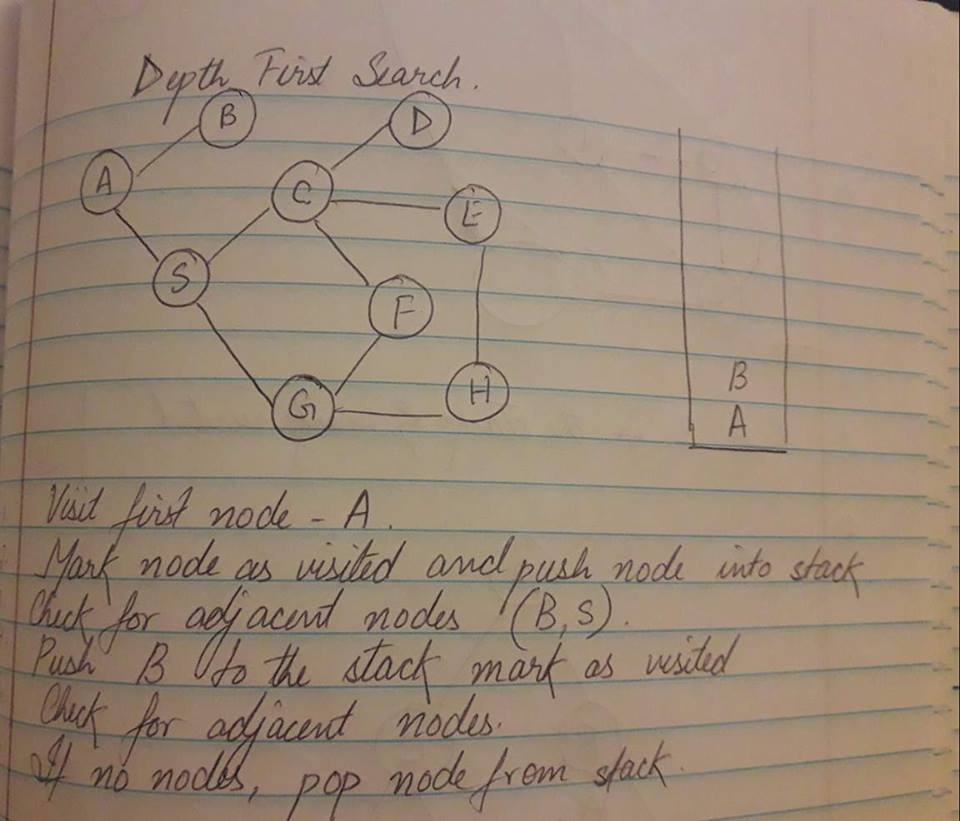 Depth First Search.
B
D
A
C
E
S
F
B
H
G
A
Visit first node - A.
Mark node as visited and push node into stack
Check for adjacent nodes (B,S).
Push B to the stack mark as visited
Check for adjacent nodes.
If no nodes, pop node from stack.